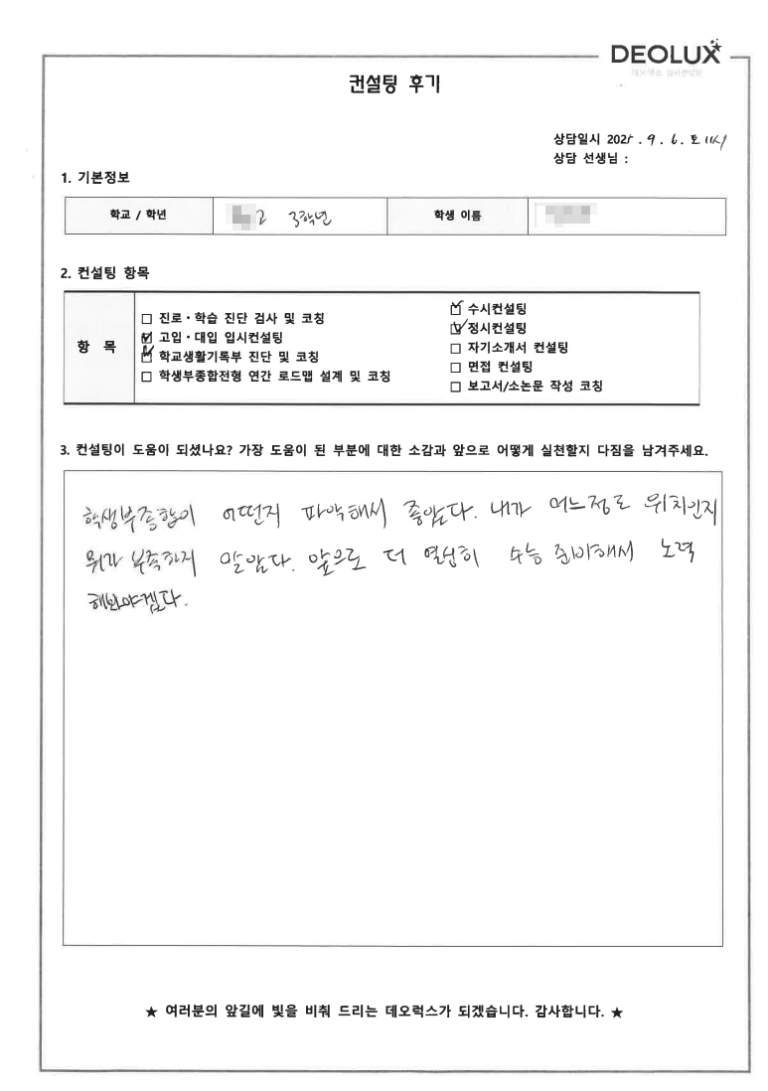 DEOLUX
컨설팅 후기
상담일시 2025 . 9 . 6 . 토 11시
상담 선생님 :
1. 기본정보
학교 / 학년 고 3학년 학생 이름
2. 컨설팅 항목
항 목
☐ 진로·학습 진단 검사 및 코칭
☑ 고입·대입 입시컨설팅
☑ 학교생활기록부 진단 및 코칭
☐ 학생부종합전형 연간 로드맵 설계 및 코칭
☑ 수시컨설팅
☑ 정시컨설팅
☐ 자기소개서 컨설팅
☐ 면접 컨설팅
☐ 보고서/소논문 작성 코칭
3. 컨설팅이 도움이 되셨나요? 가장 도움이 된 부분에 대한 소감과 앞으로 어떻게 실천할지 다짐을 남겨주세요.
학생부종합이 어떤지 파악해서 좋았다. 내가 어느정도 위치인지
뭐가 부족한지 알았다. 앞으로 더 열심히 수능 준비해서 노력
해봐야겠다.
★ 여러분의 앞길에 빛을 비춰 드리는 데오럭스가 되겠습니다. 감사합니다. ★